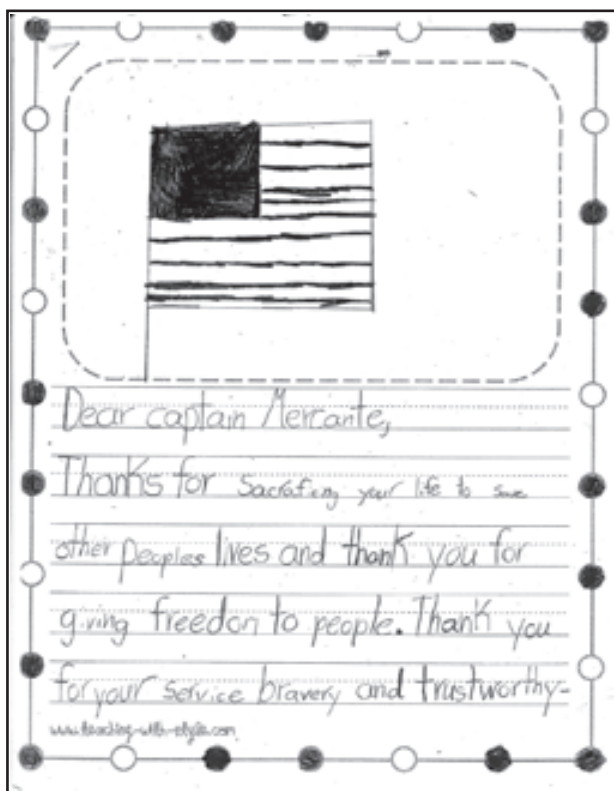 Dear captain Mercante,
Thanks for sacrafing your life to save
other peoples lives and thank you for
giving freedon to people. Thank you
for your service bravery and trustworthy-
www.teaching-with-style.com